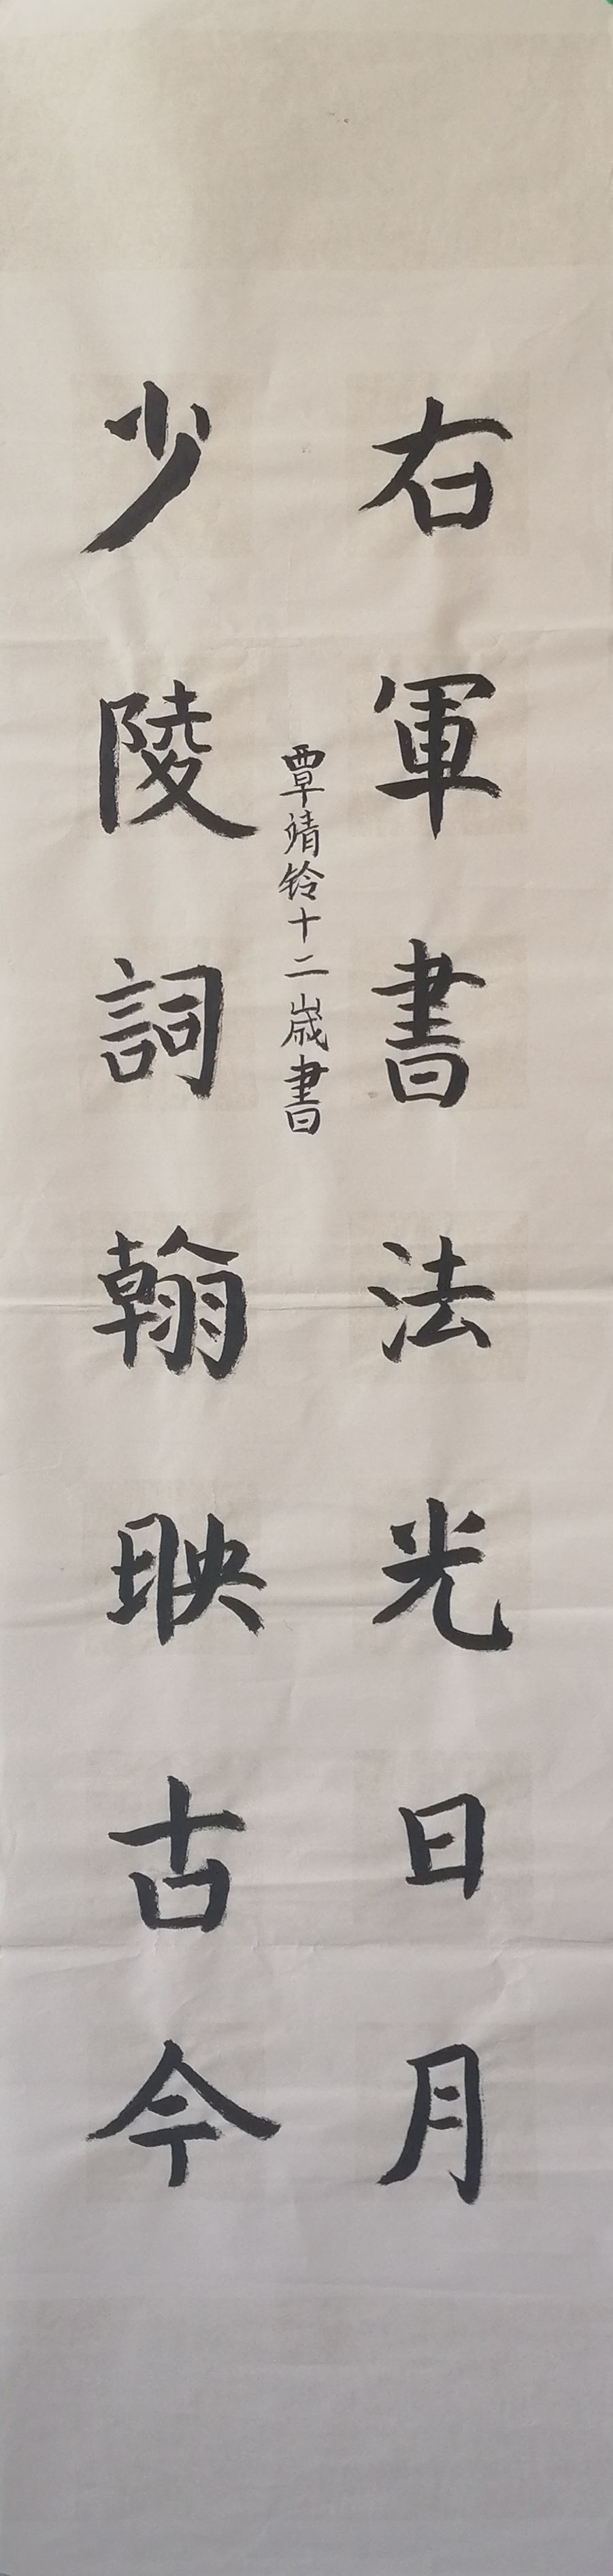 右軍書法光日月
少陵詞翰映古今
覃靖铃十二歲書